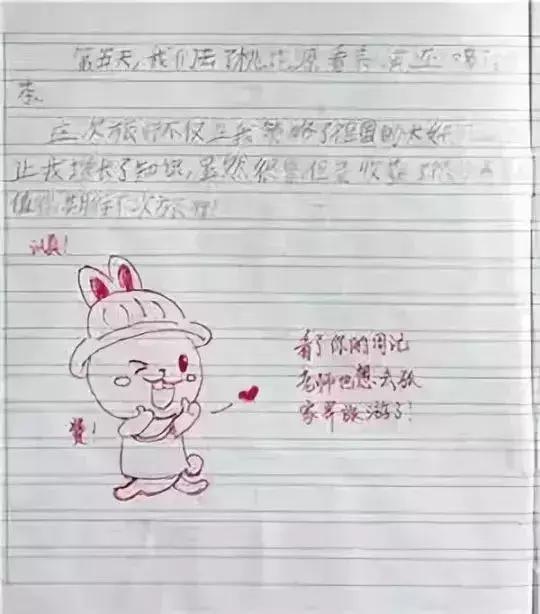 第五天，我们去了桃花源看
李。
这次旅行不仅让我领略了祖国的大好
让我增长了知识，虽然很累但是收获了
值！期待下次旅行！
认真！
看了你的周记
老师也想去张
家界旅游了！
赞！